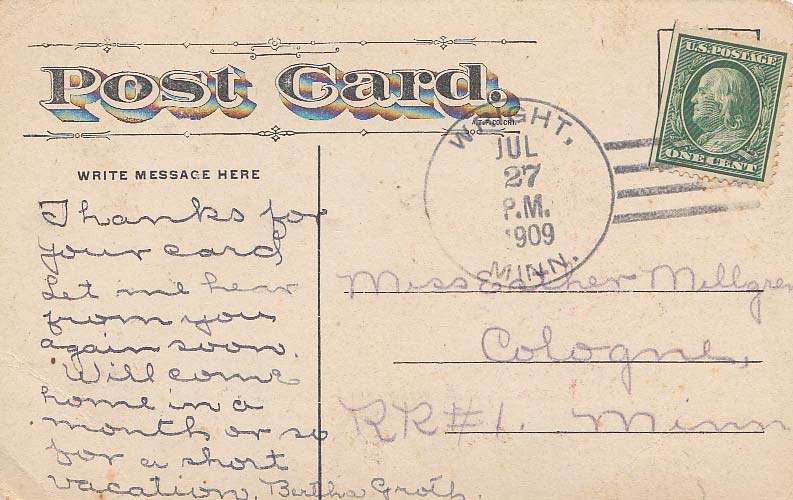 Post Card.
U.S. POSTAGE
ONE CENT
WRIGHT,
JUL
27
P.M.
1909
MINN.
WRITE MESSAGE HERE
Thanks for
your card
Let me hear
from you
again soon.
Will come
home in a
month or so
for a short
vacation. Bertha Groth.
Miss Esther Millgren
Cologne,
RR#1. Minn